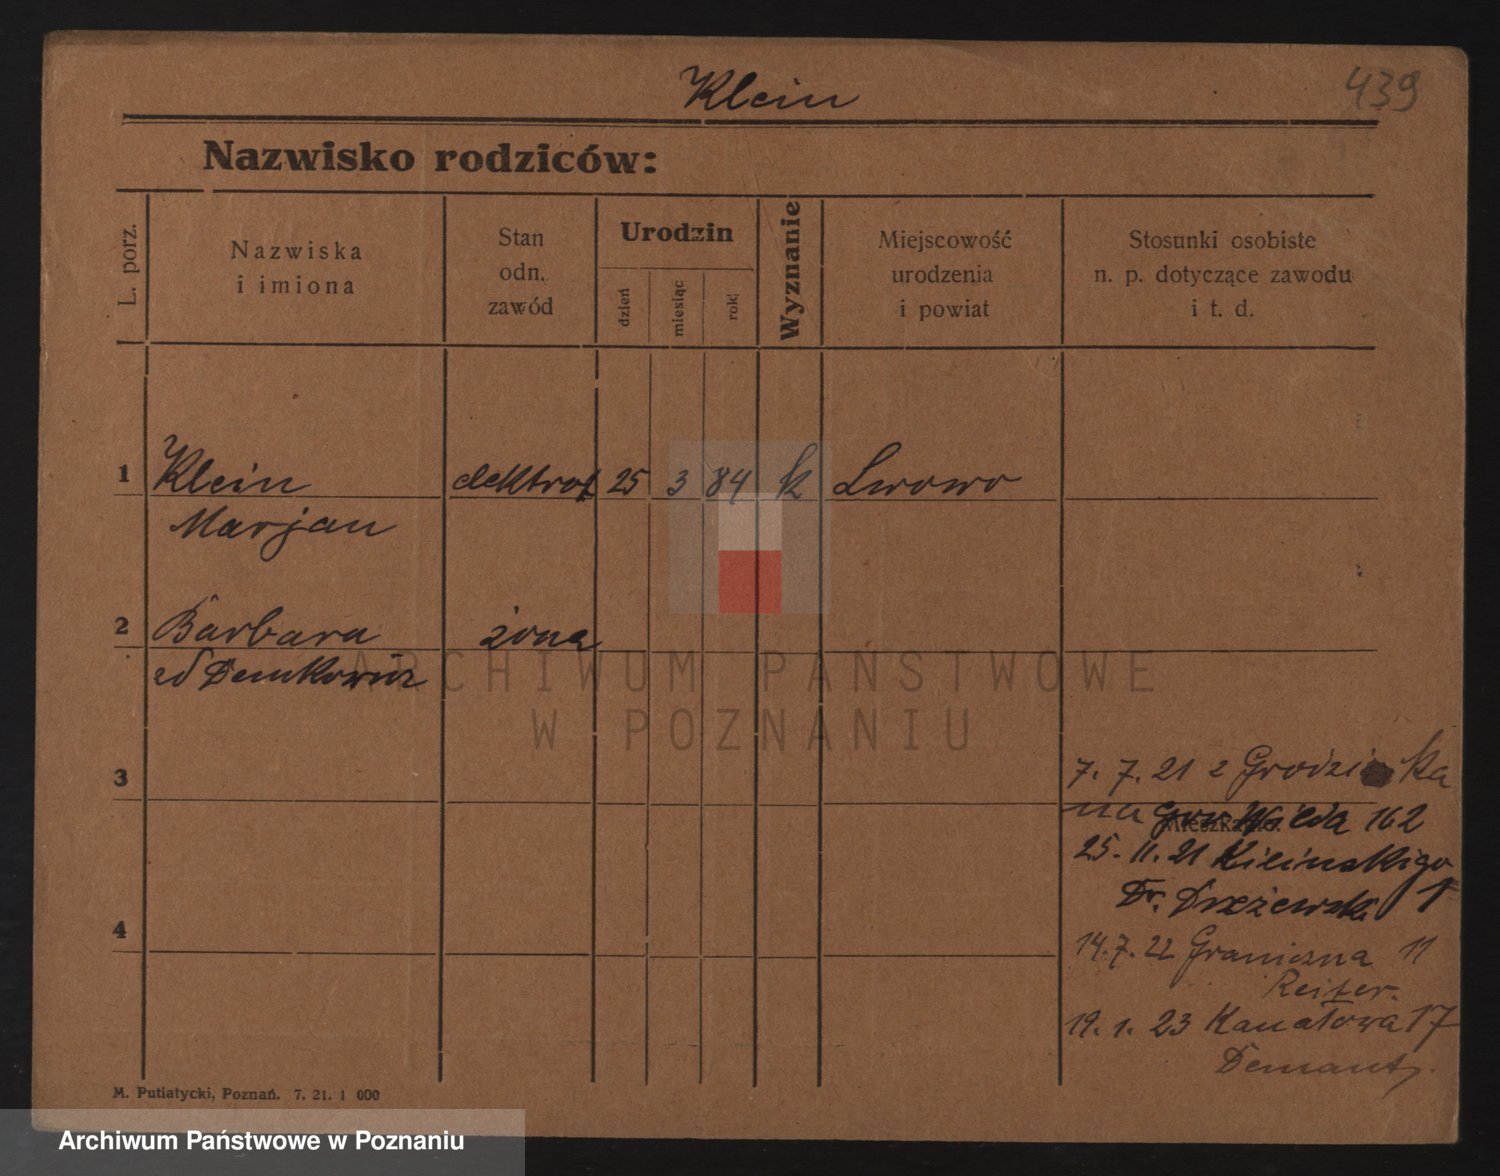 Klein
439
Nazwisko rodziców:
L. porz.
Nazwiska
i imiona
Stan
odn.
zawód
Urodzin
dzień
miesiąc
rok
Wyznanie
Miejscowość
urodzenia
i powiat
Stosunki osobiste
n. p. dotyczące zawodu
i t. d.
1 Klein 25 3 84 k Lwowo
Marjan
2 Barbara żona
Demkowicz
3
7. 7. 21 z
na Wilda 162
25. 11. 21 Kilinskigo
Dr. 1
4
14. 7. 22 Graniczna 11
Reiter.
19. 1. 23 Kanałowa 17
Demant
M. Putiatycki, Poznań. 7. 21. 1 000
ARCHIWUM PAŃSTWOWE
W POZNANIU
Archiwum Państwowe w Poznaniu